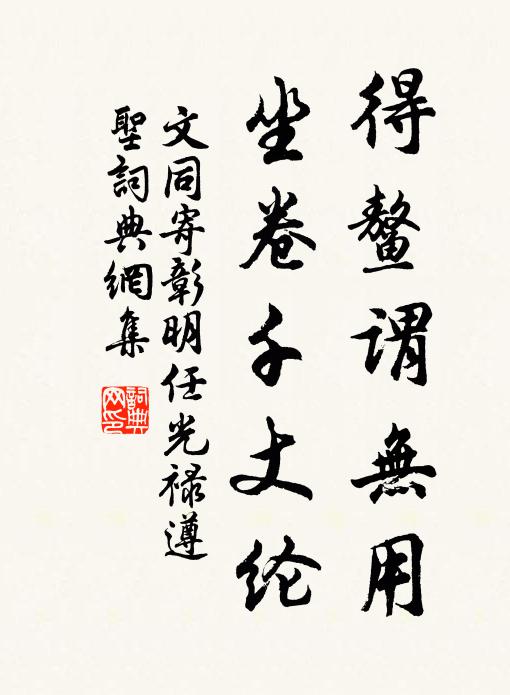 得鳌謂無用
坐卷千丈纶
文同寄彰明任光禄遵
聖詞典網集
詞典
网印